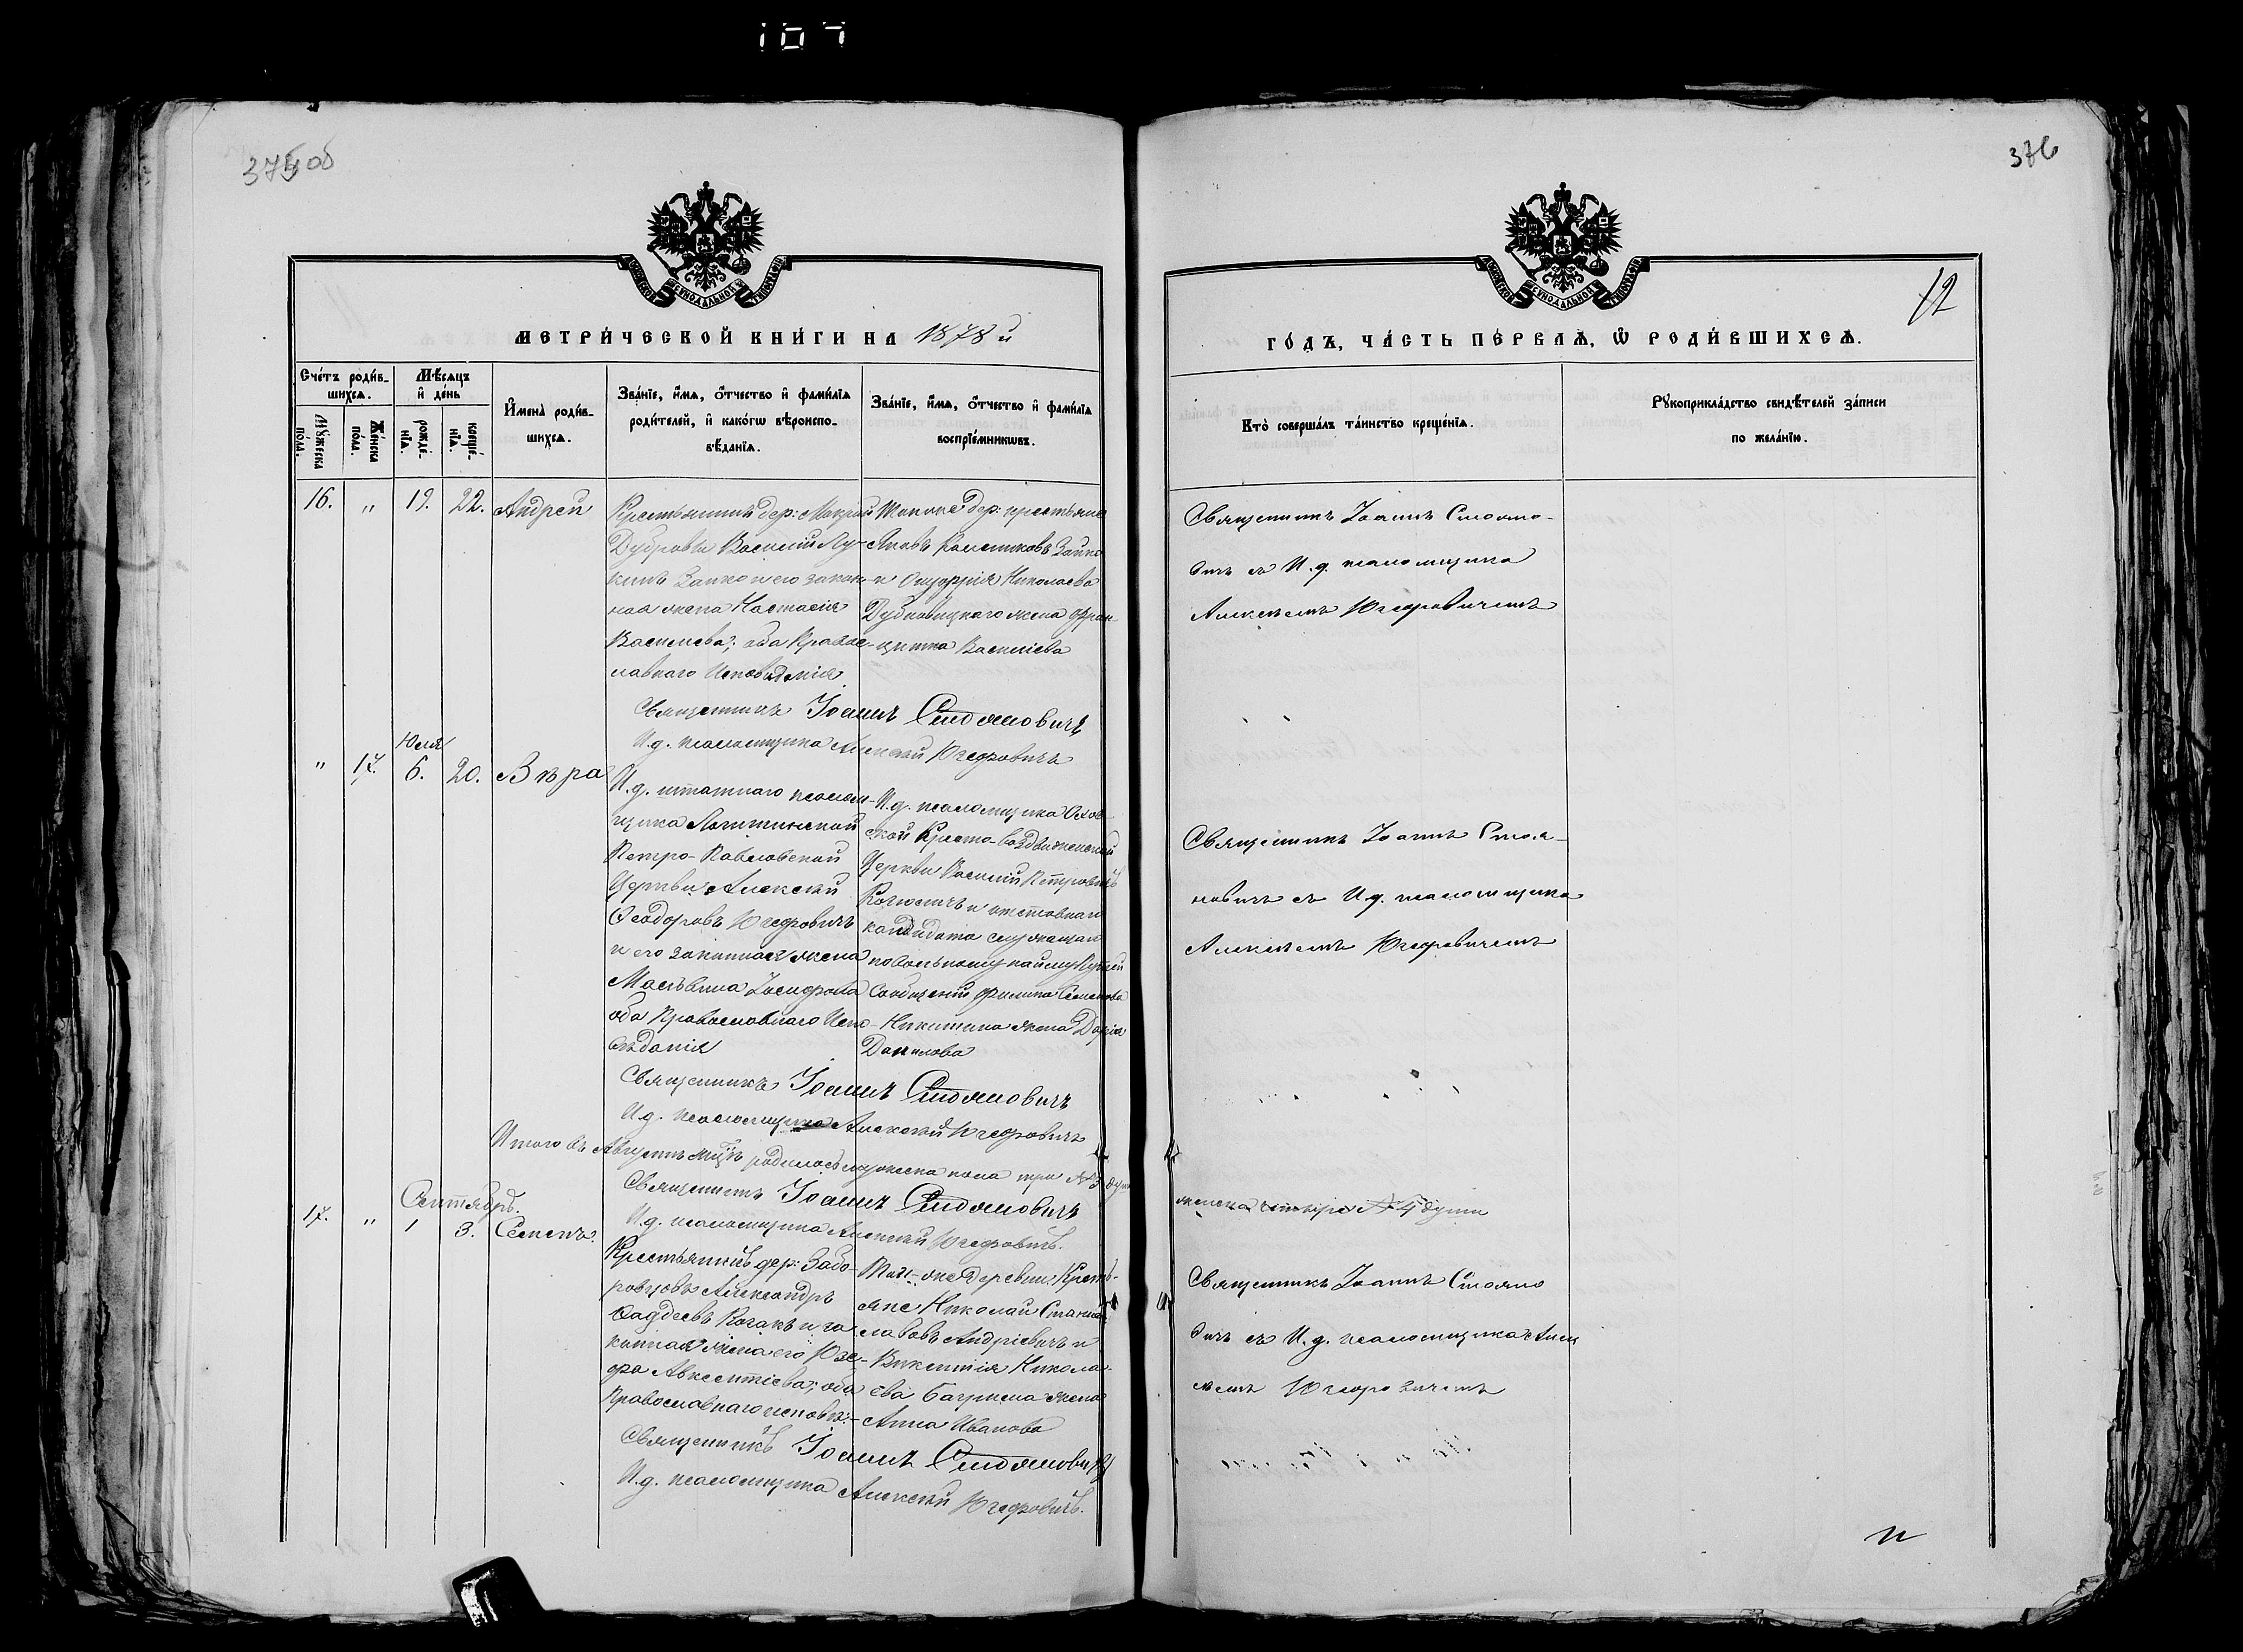 107
375об
376
12
МЕТРИ́ЧЕСКОЙ КНИ́ГИ НА 1878 й
ГО́ДЪ, ЧА́СТЬ ПЕ́РВАѦ, Ѿ РОДИ́ВШИХСѦ.
Сче́тъ роди́в-
шихсѧ.
Мѣ́сѧцъ
и҆ де́нь
Мꙋ́жеска по́ла.
Же́нска по́ла.
рожде́-нїѧ.
креще́-нїѧ.
И҆мена̀ роди́в-
шихсѧ.
Зва́нїе, и҆́мѧ, ѻ҆́тчество и҆ фами́лїѧ
роди́телей, и҆ како́гѡ вѣроиспо-
вѣ́данїѧ.
Зва́нїе, и҆́мѧ, ѻ҆́тчество и҆ фами́лїѧ
воспрїе́мникѡвъ.
Кто̀ соверша́лъ та́инство креще́нїѧ.
Рꙋкоприкла́дство свидѣ́телей за́писи
по жела́нїю.
16. " 19. 22. Андрей
Крестьянинъ дер: Мокрой
Дубровы Василій Лу-
кинъ Заико и его закон-
ная жена Настасія
Васильева; оба Правос-
лавнаго Исповѣданія
Тойже дер: крестьяне
и Николаева
жена Фран-
Василіева
Священникъ Іоаннъ Стояновичъ
И.д. псаломщика Алексѣй Югфровичъ
Священникъ Іоаннъ Стояно-
вичъ съ И.д. псаломщика
Алексѣемъ Югфровичемъ
Юля
" 17. 6. 20. Вѣра
И.д. штатнаго псалом-
щика Логишинской
Петро-Павловской
Церкви Алексѣй
Ѳеодоровъ Югфровичъ
и его законная жена
Іосифова
оба Православнаго Испо-
вѣданія
И.д. псаломщика Охов-
ской Кресто-воздвиженской
Церкви Василій Петровичъ
и отставнаго
кандидата служащаго
по вольному найму Путей
Сообщеній Филипа Семенова
Никитина жена Дарія
Данилова
Священникъ Іоаннъ Стояновичъ
И.д. псаломщика Алексѣй Югфровичъ
Священникъ Іоаннъ Стоя-
новичъ съ И.д. псаломщика
Алексѣемъ Югфровичемъ
Итого въ Августѣ мцѣ родилось мужеска пола три №3 души
женска четыре №4 души
Священникъ Іоаннъ Стояновичъ
И.д. псаломщика Алексѣй Югфровичъ.
Сентябрь.
17. " 1 3. Семенъ.
Крестьянинъ дер: Забо-
ровцовъ Александръ
Фаддеевъ Козакъ и за-
конная жена его Юзе-
фа Авксентіева; оба
Православнаго исповѣ:-
Той-же деревни Кресть-
яне Николай Станис-
лавовъ Андріевичъ и
Викентія Никола-
ева жена
Анна Иванова
Священникъ Іоаннъ Стояновичъ
И.д. псаломщика Алексѣй Югфровичъ.
Священникъ Іоаннъ Стояно
вичъ съ И.д. псаломщика Алек
сѣемъ Югфровичемъ